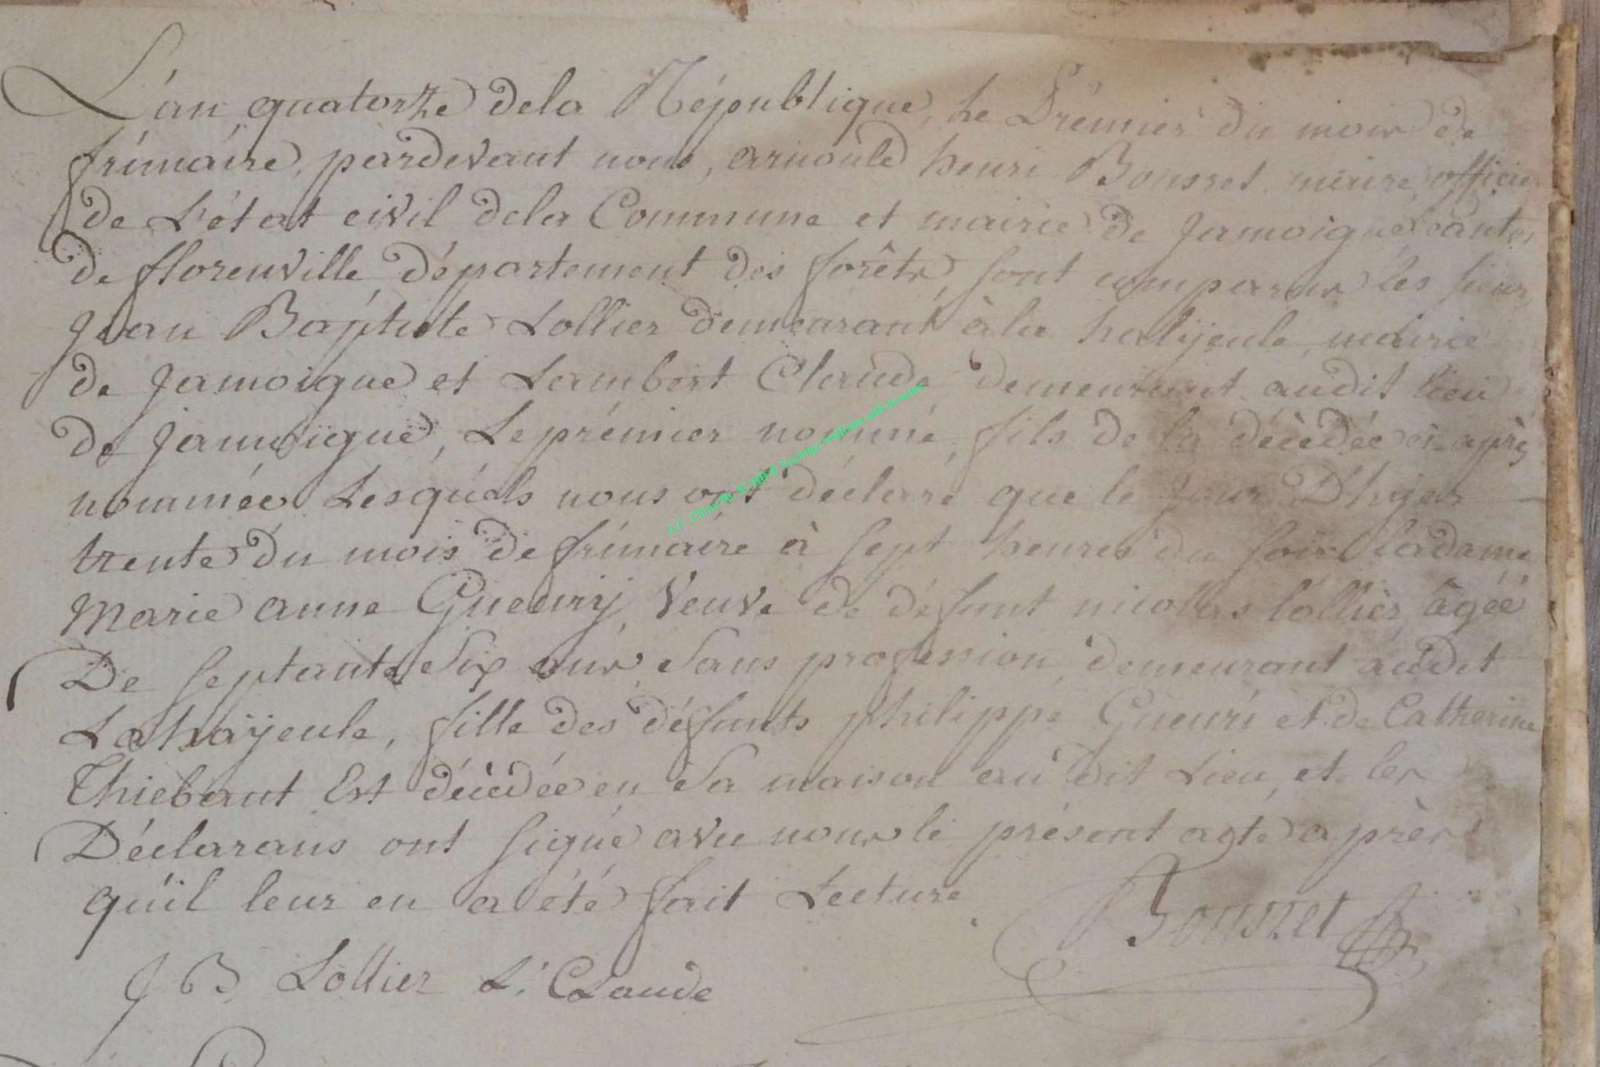 L'an quatorze dela République, Le Prémier du mois de
frimaire, pardevant nous, arnould henri Bousret maire officier
de L'état civil dela Commune et mairie de Jamoigne Canton
de florenville, département des forêts, sont comparus les sieurs
Jean Baptiste Lollier demeurant àla halÿeule, mairie
de Jamoigne et Lambert Claude demeurant audit lieu
de Jamoigne, Le prémier nommé, fils de la décédée ci après
nommée Lesquéls nous ont déclaré que le jour D'hyer
trente du mois de frimaire à sept heures du soir Ladame
Marie anne Gueury, Veuve de défunt nicollas lollier, âgéé
De septante six ans, sans profession, demeurant audit
Lahaÿeule, fille des défunts philippe Gueuri et de Catherine
Thiebaut Est décédée en sa maison au dit Lieu, et les
Déclarans ont signé avec nous le présent acte après
qu'il leur en a été fait Lecture.
Bousret
J B Lollier L: CLaude